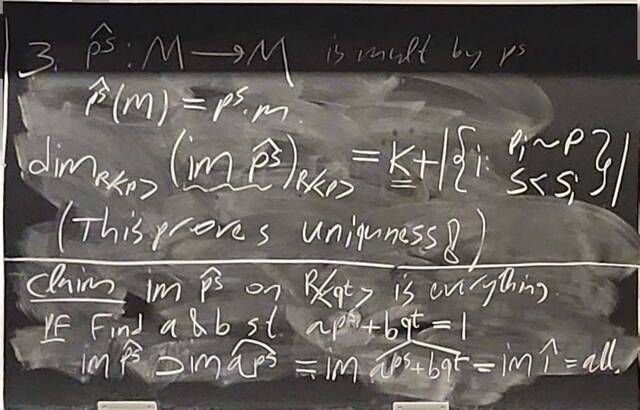 3. p̂ˢ: M → M is mult by pˢ
p̂ˢ(m) = pˢ·m.
dim_{R/<p>} (im p̂ˢ)_{R/<p>} = K + |{i: pᵢ ~ p, s < sᵢ}|
(This proves uniquness!)
Claim im p̂ˢ on R/<qᵗ> is everything.
PF Find a & b st. apˢ + bqᵗ = 1
im p̂ˢ ⊃ im \widehat{apˢ} = im \widehat{apˢ+bqᵗ} = im 1̂ = all.